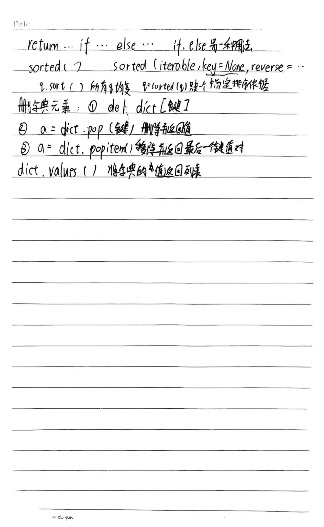 Date
return … if … else … if. else 另一种用法
sorted( ) sorted (iterable, key=None, reverse = …
指定排序依据
删字典元素: ① del dict [键]
② a = dict. pop (键) 删除并返回值
③ a = dict. popitem() 删除并返回最后一个键值对
dict. values ( ) 将字典的值返回列表